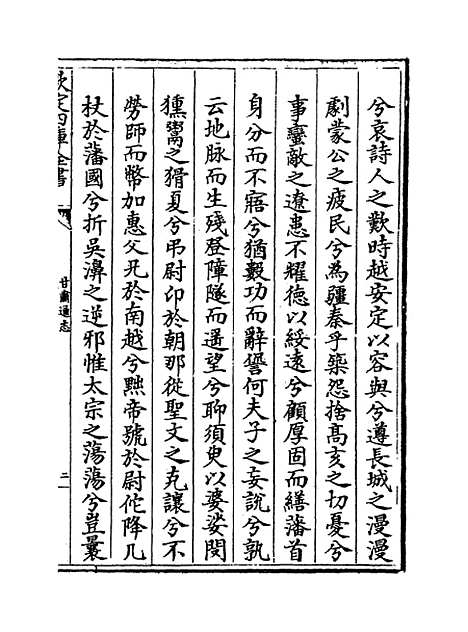 兮哀詩人之歎時越安定以容與兮遵長城之漫漫
劇蒙公之疲民兮為疆秦乎築怨捨髙亥之切憂兮
事蠻敵之遼患不耀德以綏逺兮顧厚固而繕藩首
身分而不寤兮猶數功而辭諐何夫子之妄說兮孰
云地脉而生殘登障隧而遥望兮聊須臾以婆娑閔
獯鬻之猾夏兮弔尉卬於朝那從聖文之克讓兮不
勞師而幣加惠父兄於南越兮黜帝號於尉佗降几
杖於藩國兮折吳濞之逆邪惟太宗之蕩蕩兮豈曩
欽定四庫全書
甘肅通志